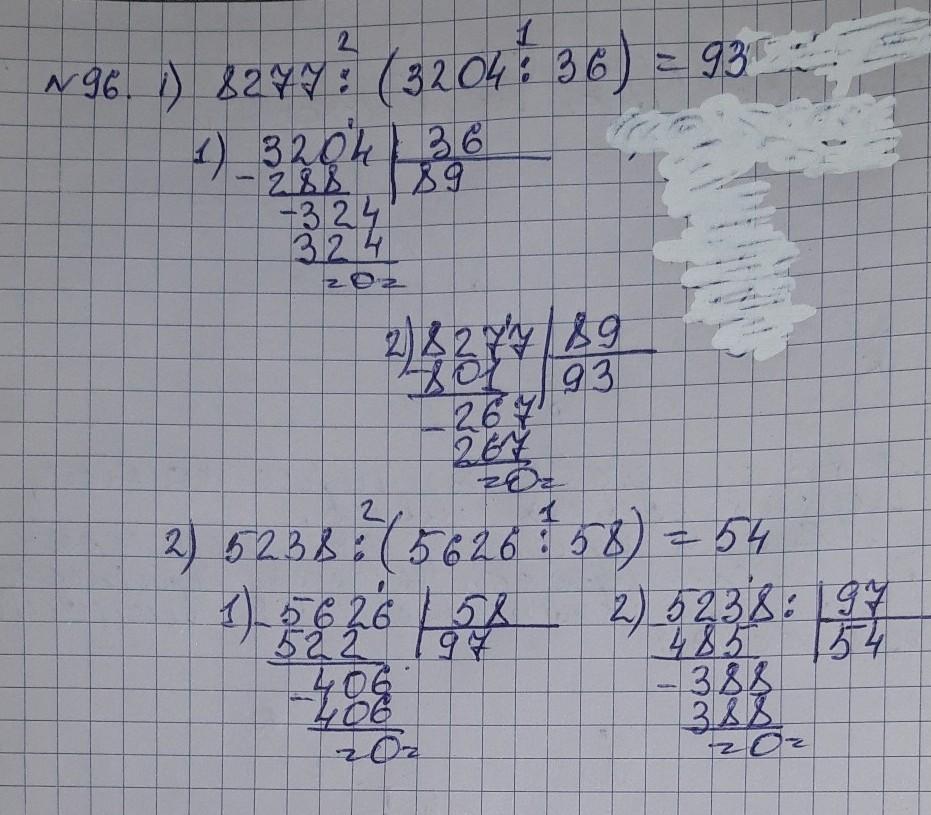 №96. 1) 8277 : (3204 : 36) = 93
2 1
1) 3204 | 36
- 288 | 89
- 324
324
= 0 =
2) 8277 | 89
- 801 | 93
- 267
267
= 0 =
2) 5238 : (5626 : 58) = 54
2 1
1) - 5626 | 58
522 | 97
- 406
406
= 0 =
2) - 5238 : | 97
485 | 54
- 388
388
= 0 =